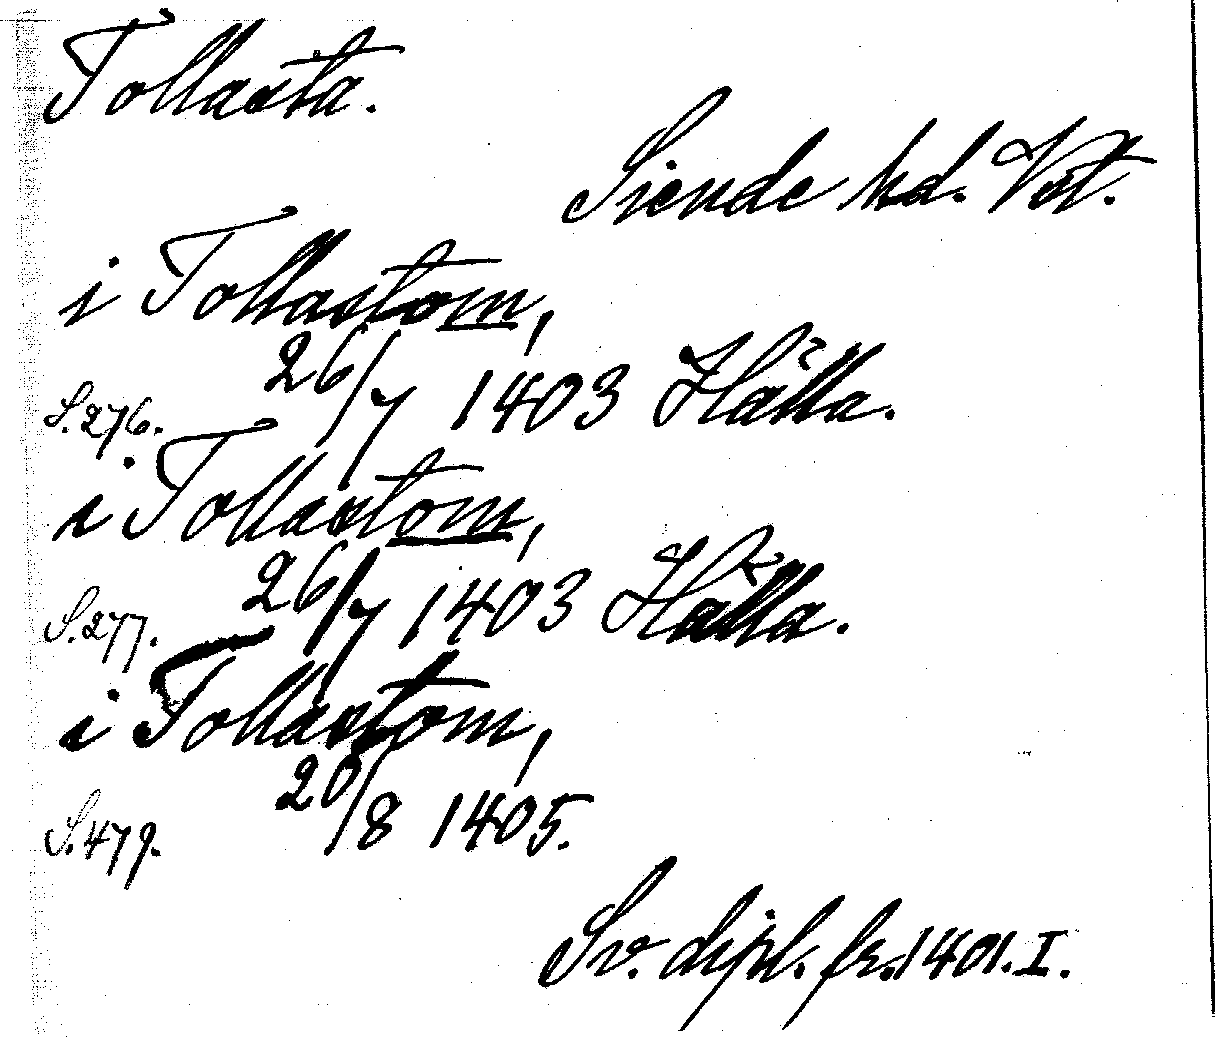 Tollasta.
Siende hd. Vst.
i Tollastom,
S. 276. 26/7 1403 Hälla.
i Tollastom,
S. 277. 26/7 1403 Hälla.
i Tollastom,
S. 479. 20/8 1405.
Sv. dipl. fr. 1401. I.